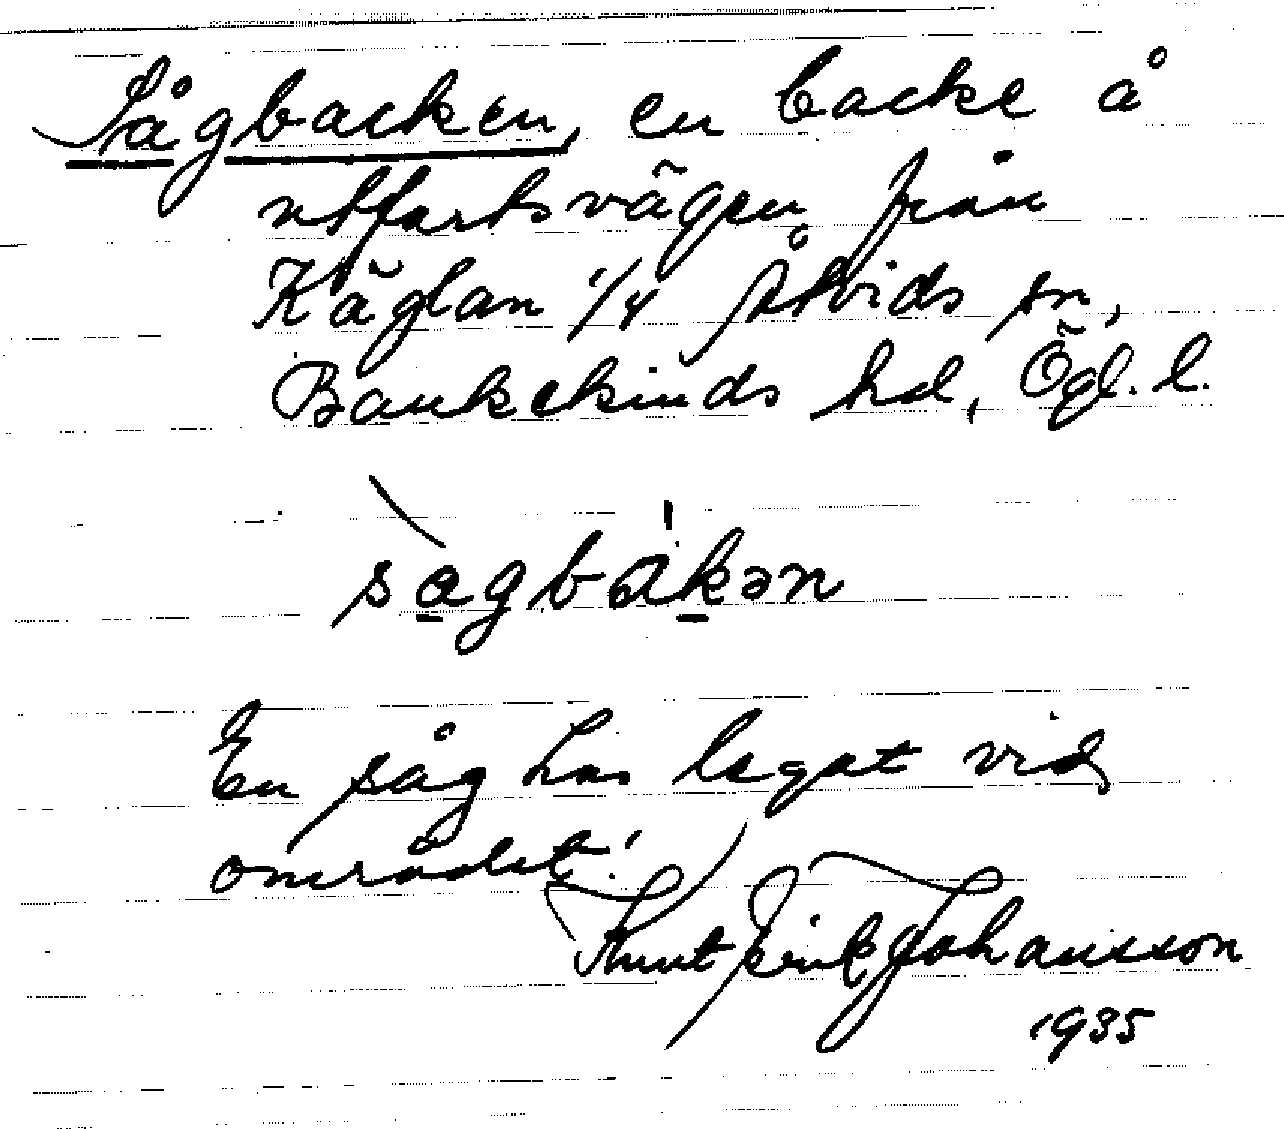 Sågbacken, en backe å
utfartsvägen från
Käglan 1/4 Åtvids sn,
Bankekinds hd, Ögl. l.
sàgbákən
En såg har legat vid
området.
Knut Erik Johansson
1935